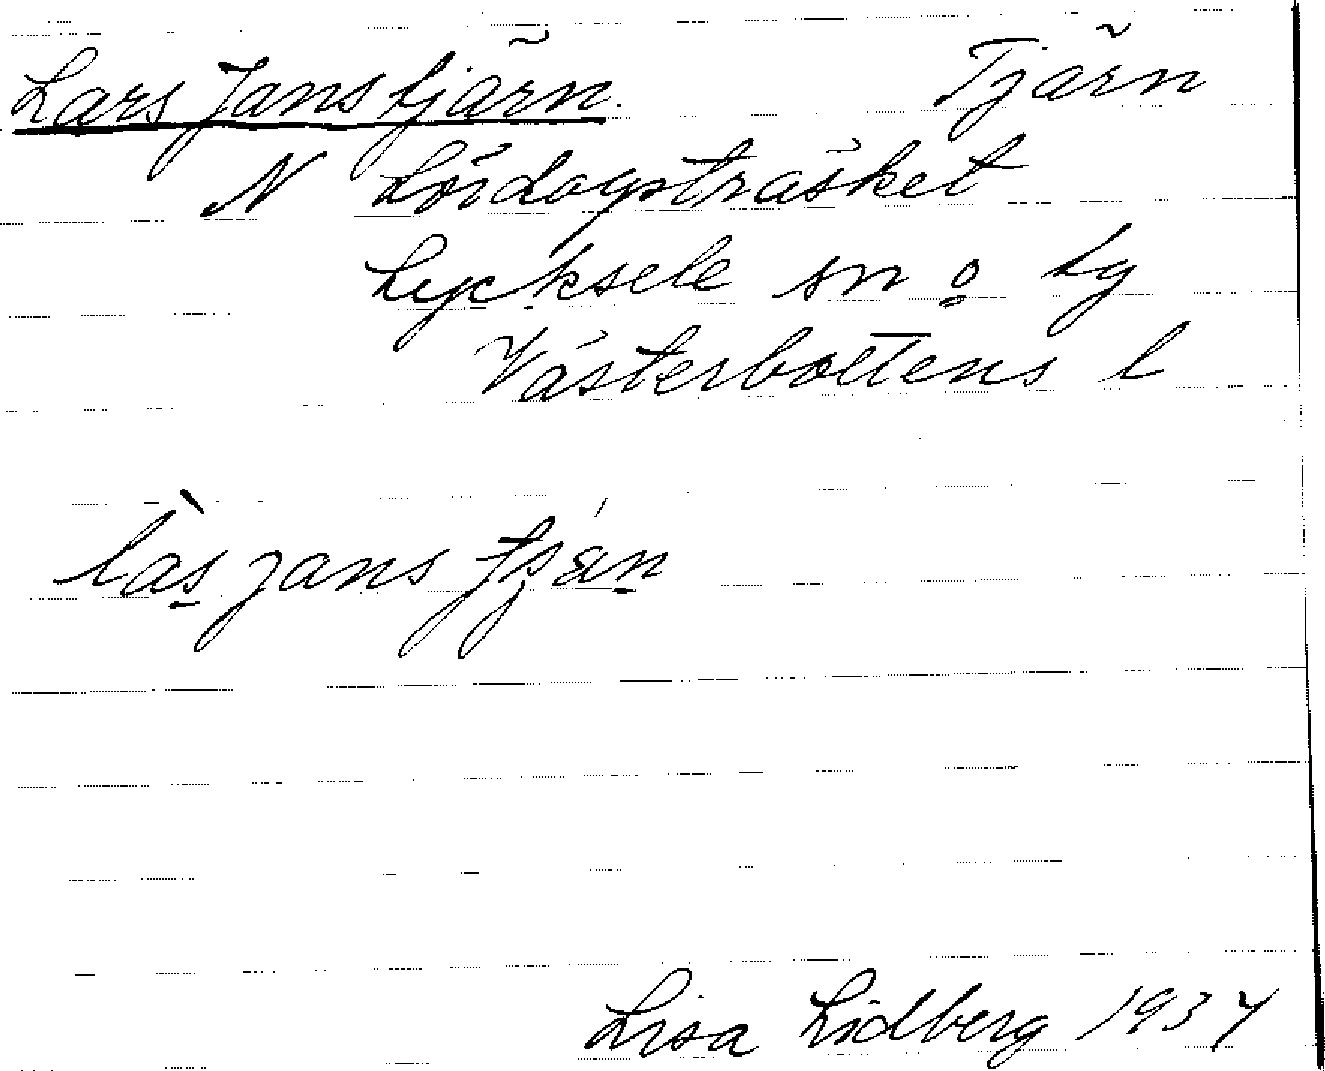 Lars Jans tjärn. Tjärn
N Lördagsträsket
Lycksele sn o lg
Västerbottens l
làs jans tjǽn
Lisa Lidberg 1934